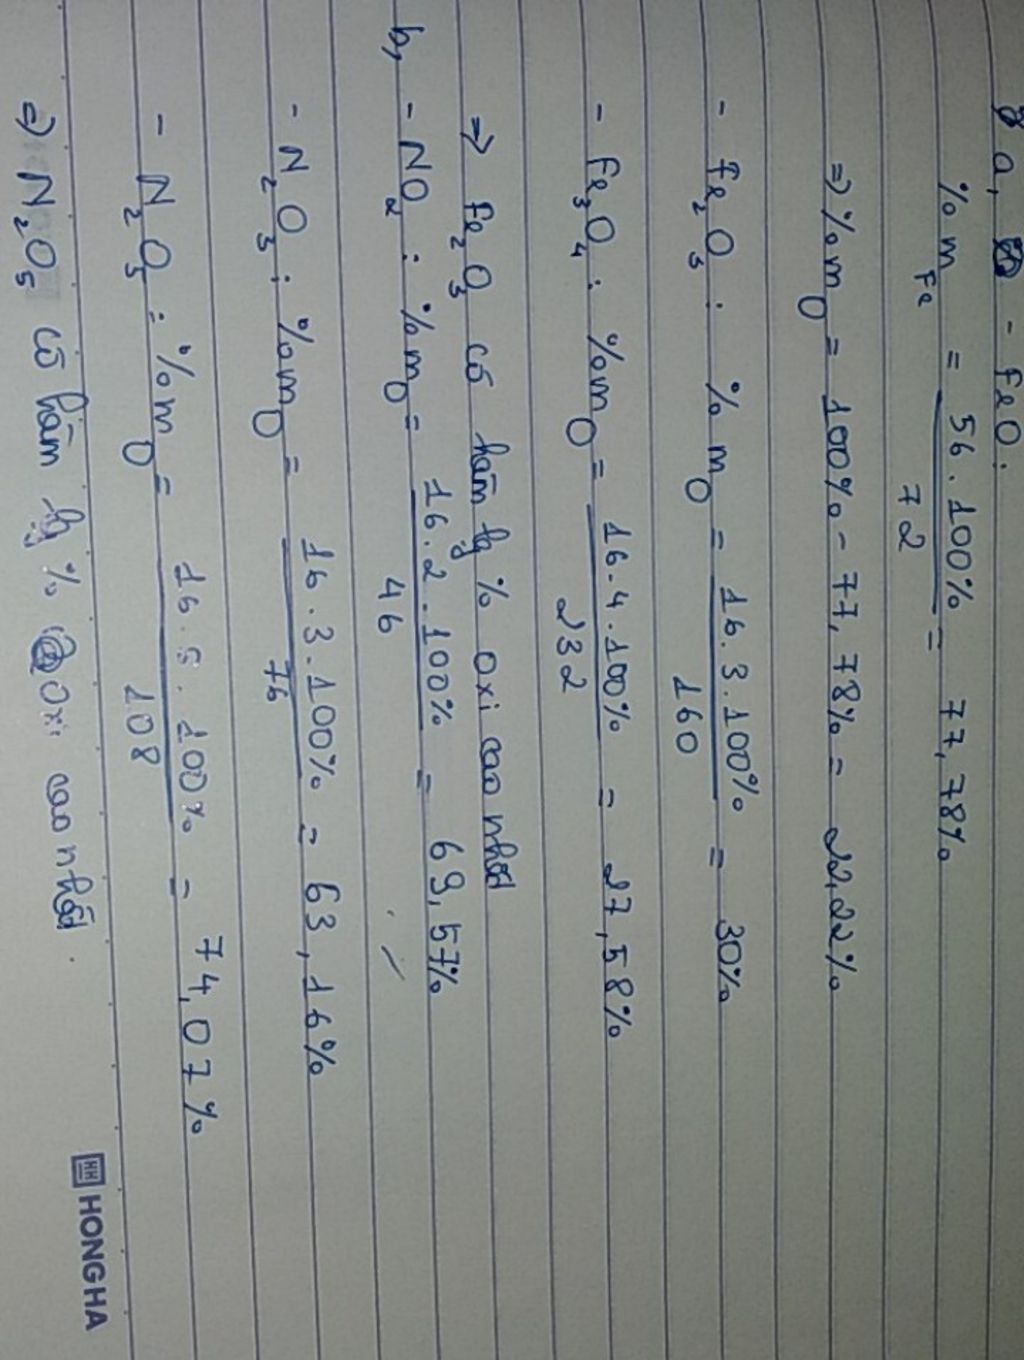 8 a, - FeO:
% m Fe = 56 . 100% / 72 = 77,78%
=> % m O = 100% - 77,78% = 22,22%
- Fe2O3 : % m O = 16 . 3 . 100% / 160 = 30%
- Fe3O4 : % m O = 16 . 4 . 100% / 232 = 27,58%
=> Fe2O3 có hàm lg % oxi cao nhất
b, - NO2 : % m O = 16 . 2 . 100% / 46 = 69,57%
- N2O3 : % m O = 16 . 3 . 100% / 76 = 63,16%
- N2O5 : % m O = 16 . 5 . 100% / 108 = 74,07%
=> N2O5 có hàm lg % Oxi cao nhất.
HONG HA